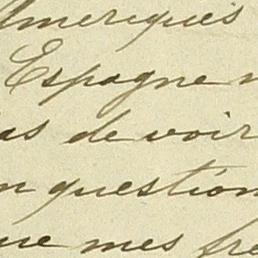 Amériques
Espagne
de voir
question
que mes frè